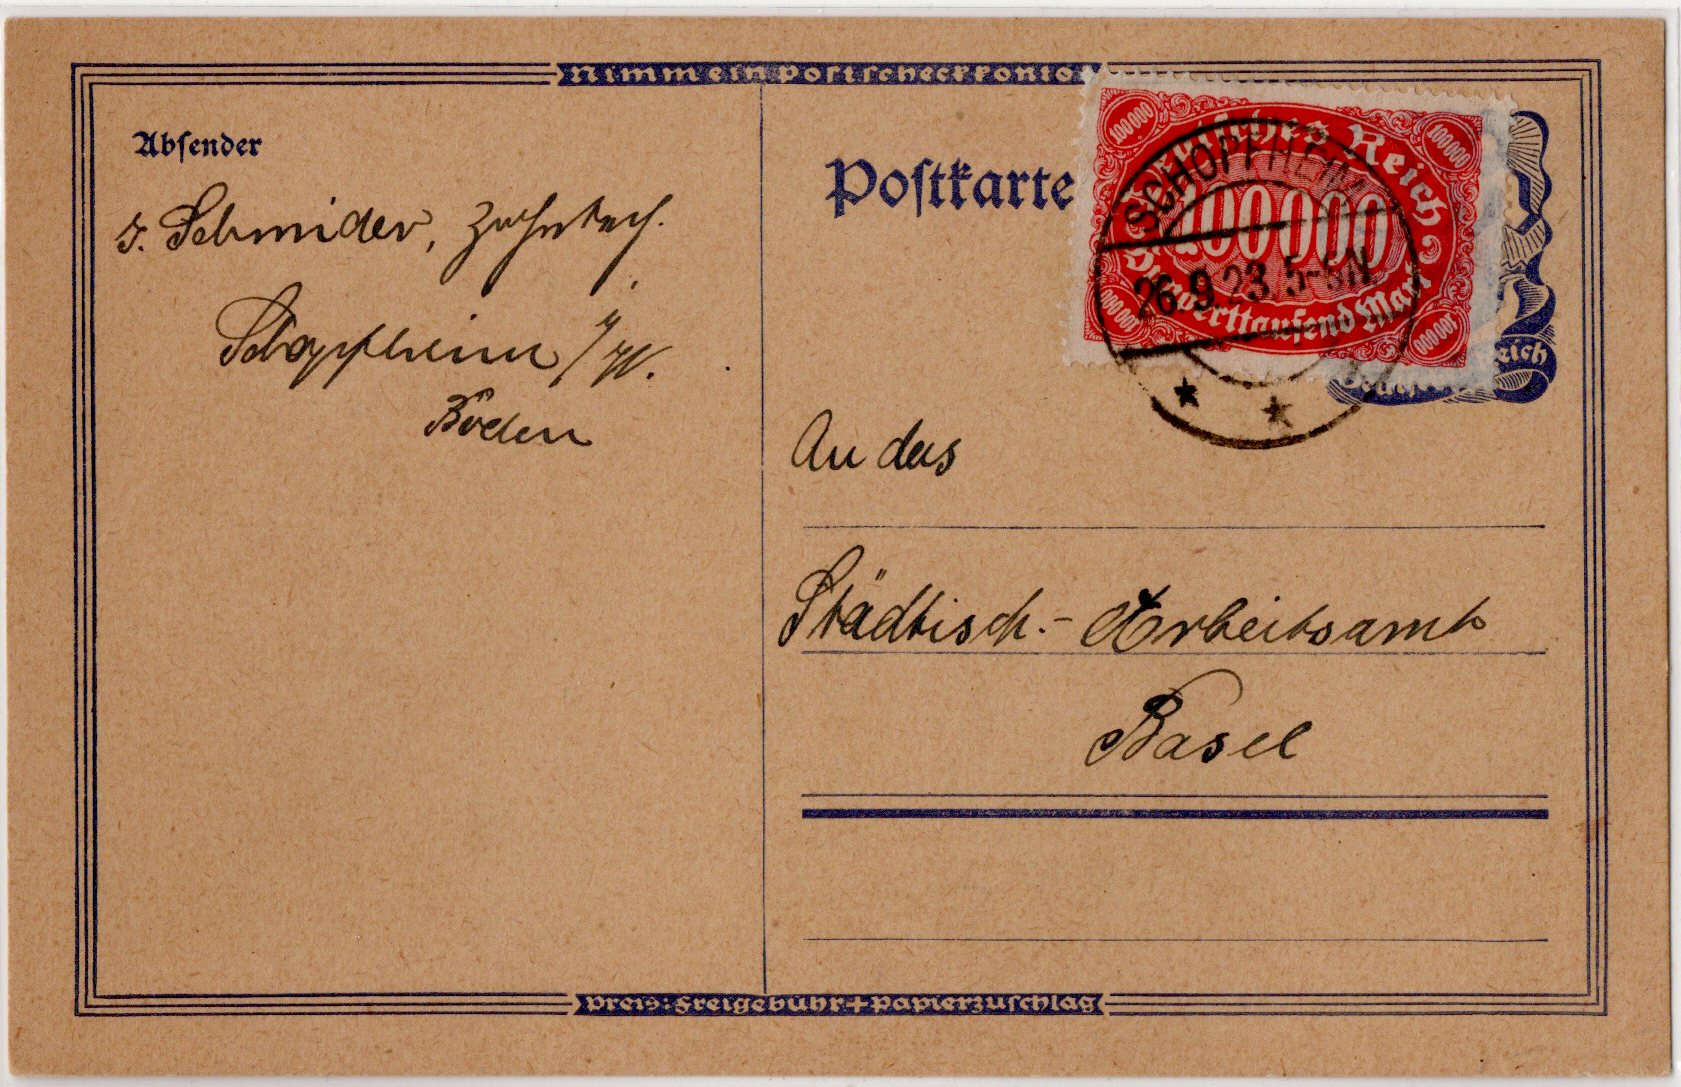 Nimm ein Postscheckkonto!
Absender
J. Schmider, Zahntech.
Schopfheim i/W.
Baden
Postkarte
100000
100000
Deutsches Reich
100000
Hunderttausend Mark
100000
100000
SCHOPFHEIM
26.9.23.5-6N
reich
An das
Städtisch.- Arbeitsamt
Basel
Preis: Freigebühr + Papierzuschlag